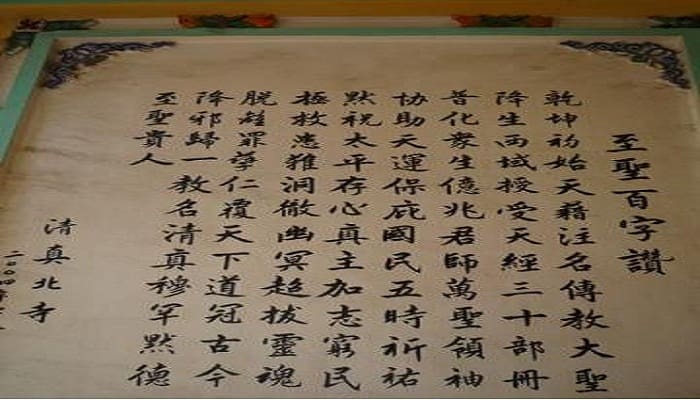 至聖百字讚
乾坤初始天藉注名傳教大聖
降生西域授受天經三十部冊
普化衆生億兆君師萬聖領袖
協助天運保庇國民五時祈祐
默祝太平存心真主加志窮民
拯救患難洞徹幽冥超拔靈魂
脱離罪孽仁覆天下道冠古今
降邪歸一教名清真穆罕默德
至聖貴人
清真北寺
二〇〇四年